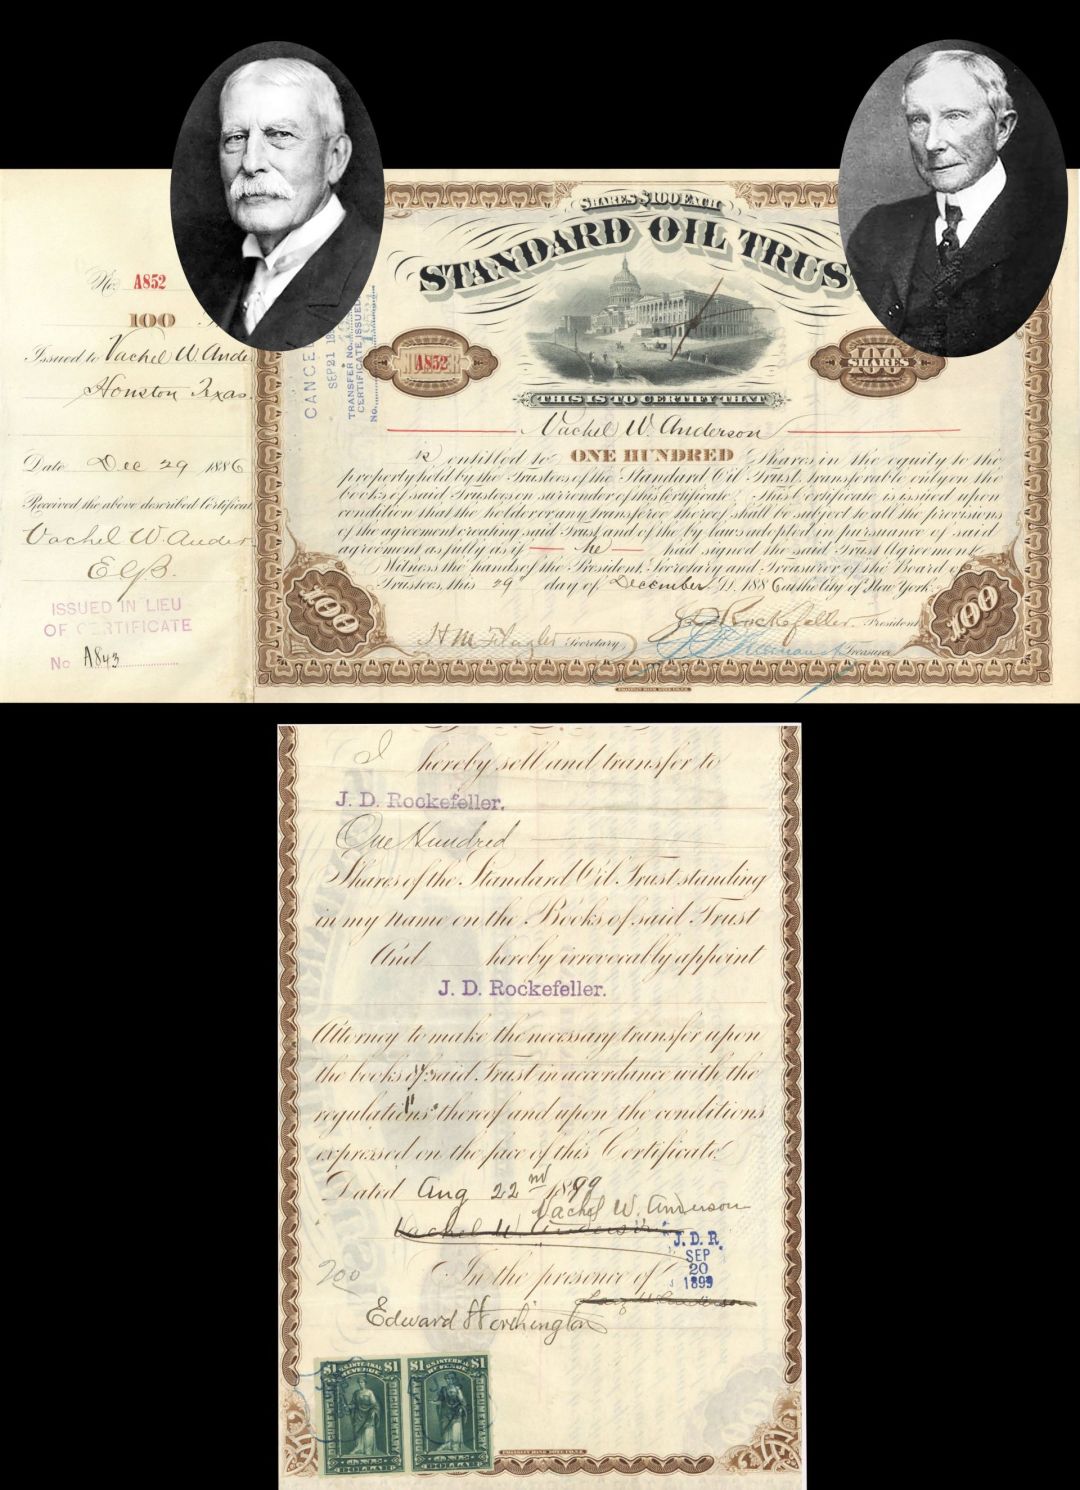 No. A852
100
Issued to Vachel W. Ande
Houston Texas.
Date Dec 29 1886
Received the above described Certificat
Vachel W. Ander
EGB.
ISSUED IN LIEU
OF CERTIFICATE
No A843
CANCE
SEP 21 18
TRANSFER No.
CERTIFICATE ISSUED
No.
SHARES $100 EACH
STANDARD OIL TRUS
A852
100
SHARES
THIS IS TO CERTIFY THAT
Vachel W. Anderson
is entitled to ONE HUNDRED Shares in the equity to the
property held by the Trustees of the Standard Oil Trust, transferable only on the
books of said Trustees on surrender of this Certificate. This Certificate is issued upon
condition that the holder or any transferee thereof shall be subject to all the provisions
of the agreement creating said Trust and of the by-laws adopted in pursuance of said
agreement as fully as if he had signed the said Trust Agreement.
Witness the hands of the President, Secretary and Treasurer of the Board of
Trustees, this 29" day of December A.D. 1886 at the City of New York.
J D Rockefeller President
H M Flagler Secretary
Treasurer
100
100
I hereby sell and transfer to
J. D. Rockefeller.
One Hundred
Shares of the Standard Oil Trust standing
in my name on the Books of said Trust
And hereby irrevocably appoint
J. D. Rockefeller.
Attorney to make the necessary transfer upon
the books of said Trust in accordance with the
regulations thereof and upon the conditions
expressed on the face of this Certificate.
Dated Aug 22nd 1899
Vachel W. Anderson
Vachel W. Anderson
J. D. R.
SEP
20
1899
200
In the presence of
Edward Worthington
$1 U.S. INTERNAL REVENUE $1
DOCUMENTARY DOCUMENTARY
ONE DOLLAR
$1 U.S. INTERNAL REVENUE $1
DOCUMENTARY DOCUMENTARY
ONE DOLLAR